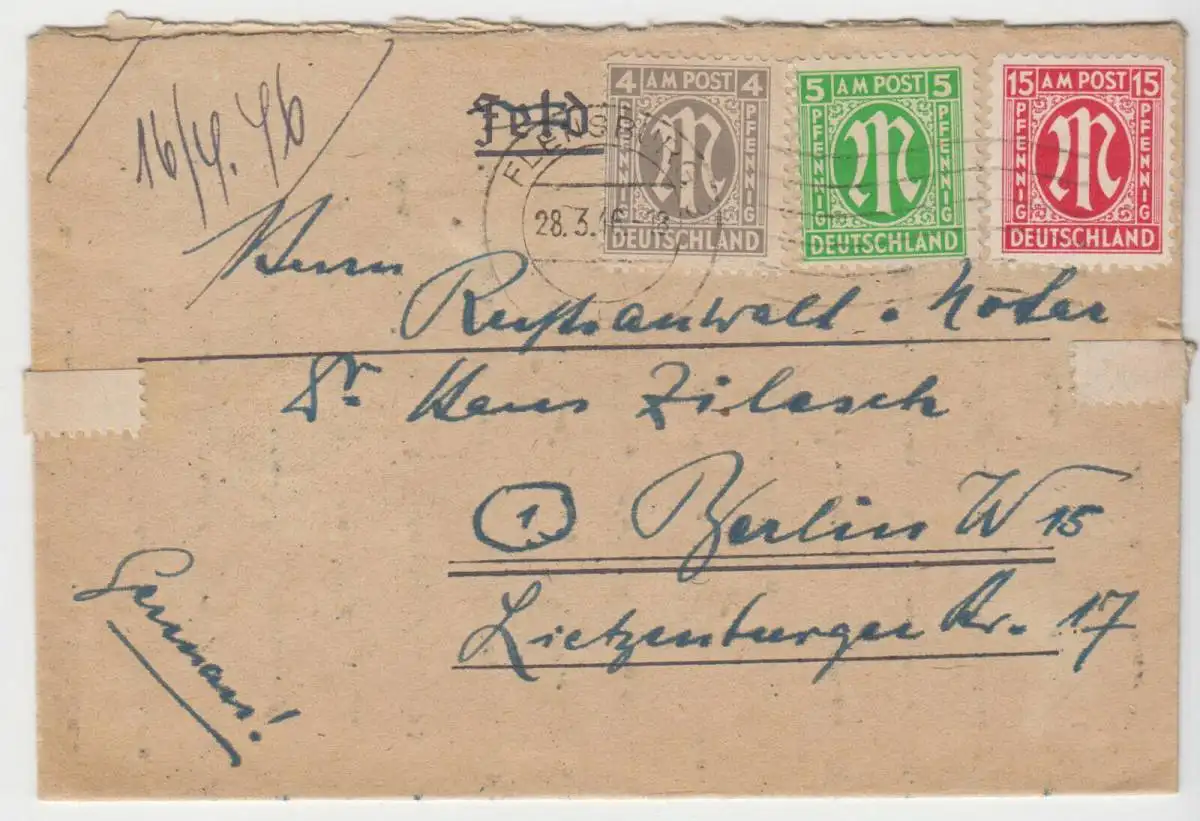 16/4. 46
Feld
4 AM POST 4
PFENNIG PFENNIG
DEUTSCHLAND
5 AM POST 5
PFENNIG PFENNIG
DEUTSCHLAND
15 AM POST 15
PFENNIG PFENNIG
DEUTSCHLAND
FLENSBURG
28.3.46-18
Herrn
Rechtsanwalt. Notar
Dr. Hans Zilesch
1 Berlin W 15
Lietzenburger Str. 17
German!